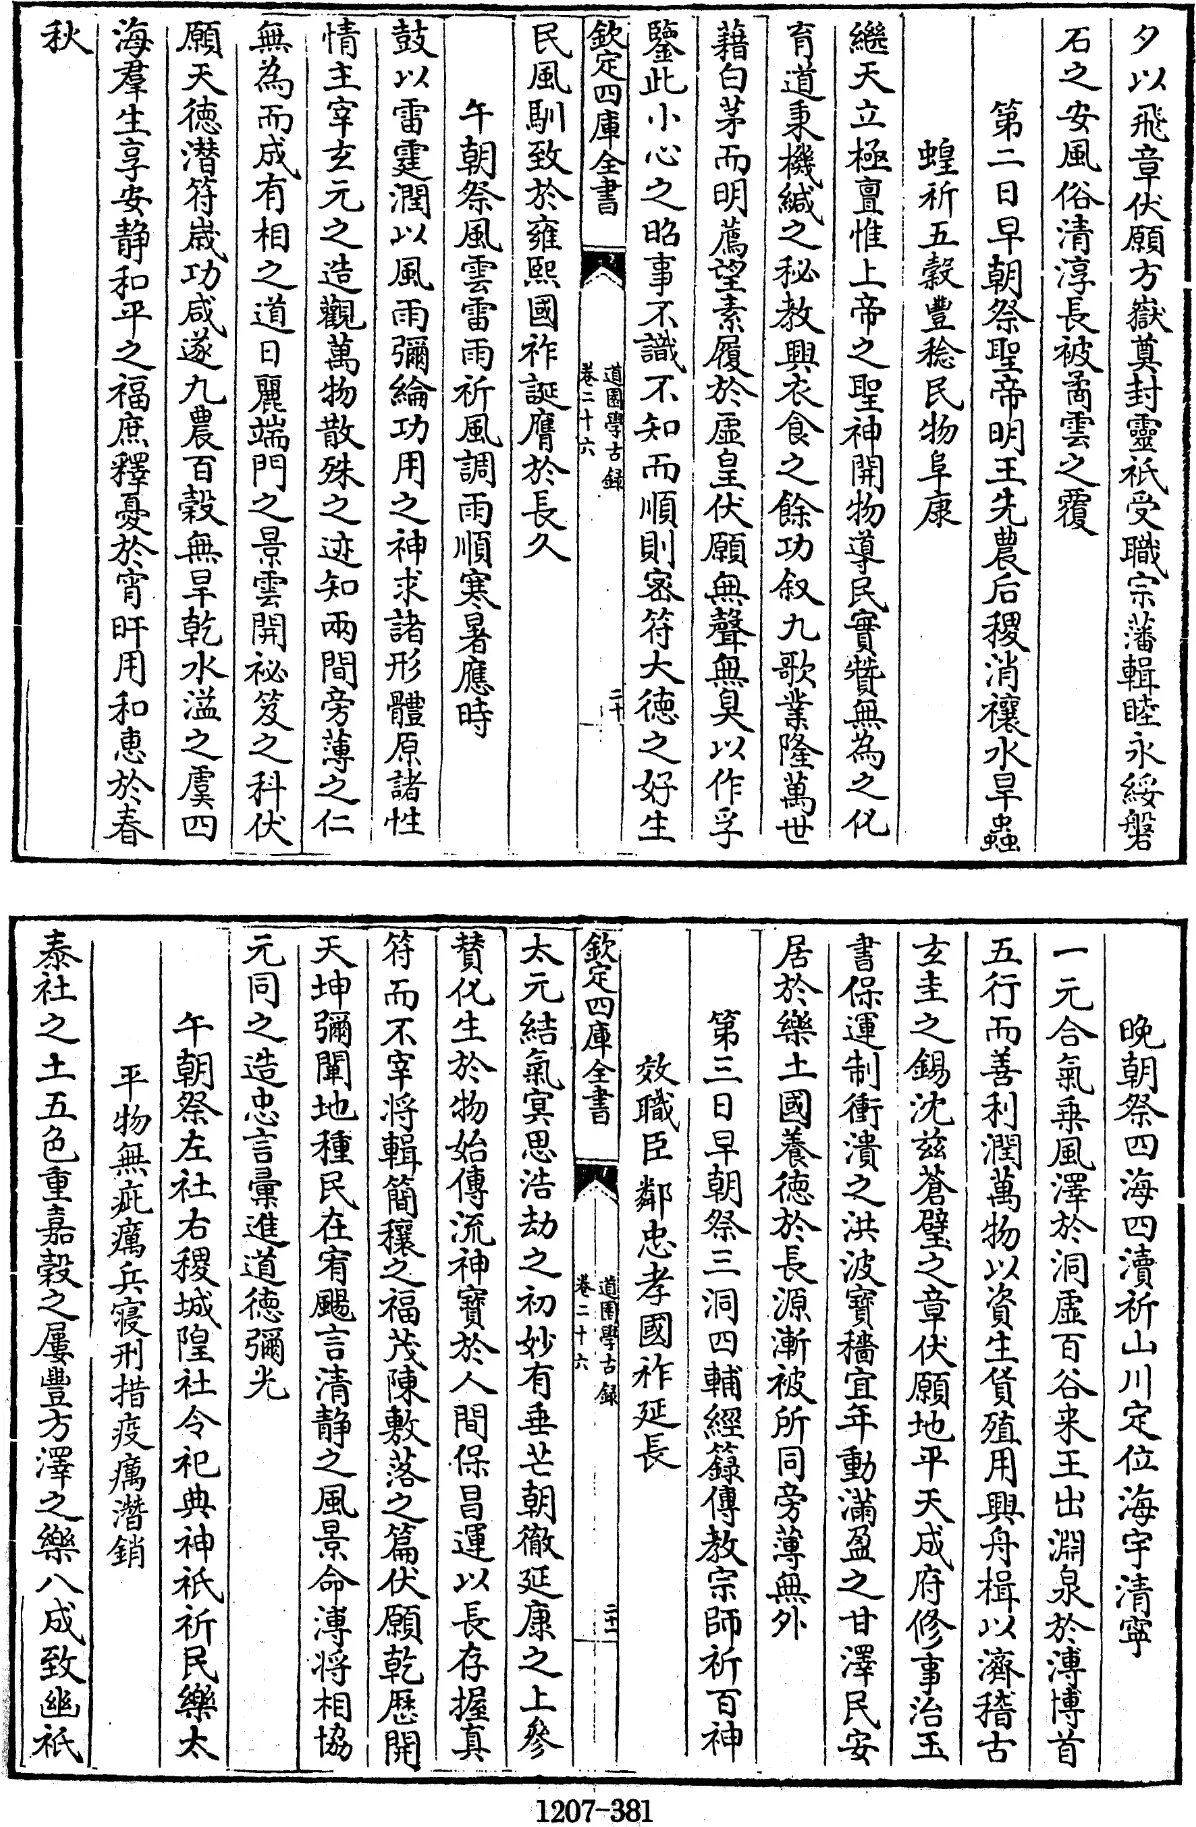 夕以飛章伏願方嶽奠封靈祇受職宗藩輯睦永綏磐
石之安風俗清淳長被矞雲之覆
第二日早朝祭聖帝明王先農后稷消禳水旱蟲
蝗祈五穀豐稔民物阜康
繼天立極亶惟上帝之聖神開物導民實贊無為之化
育道秉機緘之秘教興衣食之餘功叙九歌業隆萬世
藉白茅而明薦望素履於虛皇伏願無聲無臭以作孚
鑒此小心之昭事不識不知而順則密符大德之好生
欽定四庫全書
道園學古録
卷二十六
二十
民風馴致於雍熙國祚誕膺於長久
午朝祭風雲雷雨祈風調雨順寒暑應時
鼓以雷霆潤以風雨彌綸功用之神求諸形體原諸性
情主宰玄元之造觀萬物散殊之迹知兩間旁薄之仁
無為而成有相之道日麗端門之景雲開祕笈之科伏
願天德潛符歲功咸遂九農百穀無旱乾水溢之虞四
海羣生享安静和平之福庶釋憂於宵旰用和惠於春
秋
晚朝祭四海四瀆祈山川定位海宇清寧
一元合氣乗風澤於洞虛百谷来王出淵泉於溥博首
五行而善利潤萬物以資生貨殖用興舟楫以濟稽古
玄圭之錫沈兹蒼璧之章伏願地平天成府修事治玉
書保運制衝潰之洪波寶穡宜年動滿盈之甘澤民安
居於樂土國養德於長源漸被所同旁薄無外
第三日早朝祭三洞四輔經籙傳教宗師祈百神
效職臣鄰忠孝國祚延長
欽定四庫全書
道園學古録
卷二十六
二十一
太元結氣㝠思浩劫之初妙有垂芒朝徹延康之上參
賛化生於物始傳流神寶於人間保昌運以長存握真
符而不宰将輯簡穰之福茂陳敷落之篇伏願乾歷開
天坤彌闡地種民在宥颺言清静之風景命溥将相協
元同之造忠言彙進道德彌光
午朝祭左社右稷城隍社令祀典神祇祈民樂太
平物無疵癘兵寢刑措疫癘潛銷
泰社之土五色重嘉穀之屢豐方澤之樂八成致幽祇
1207-381